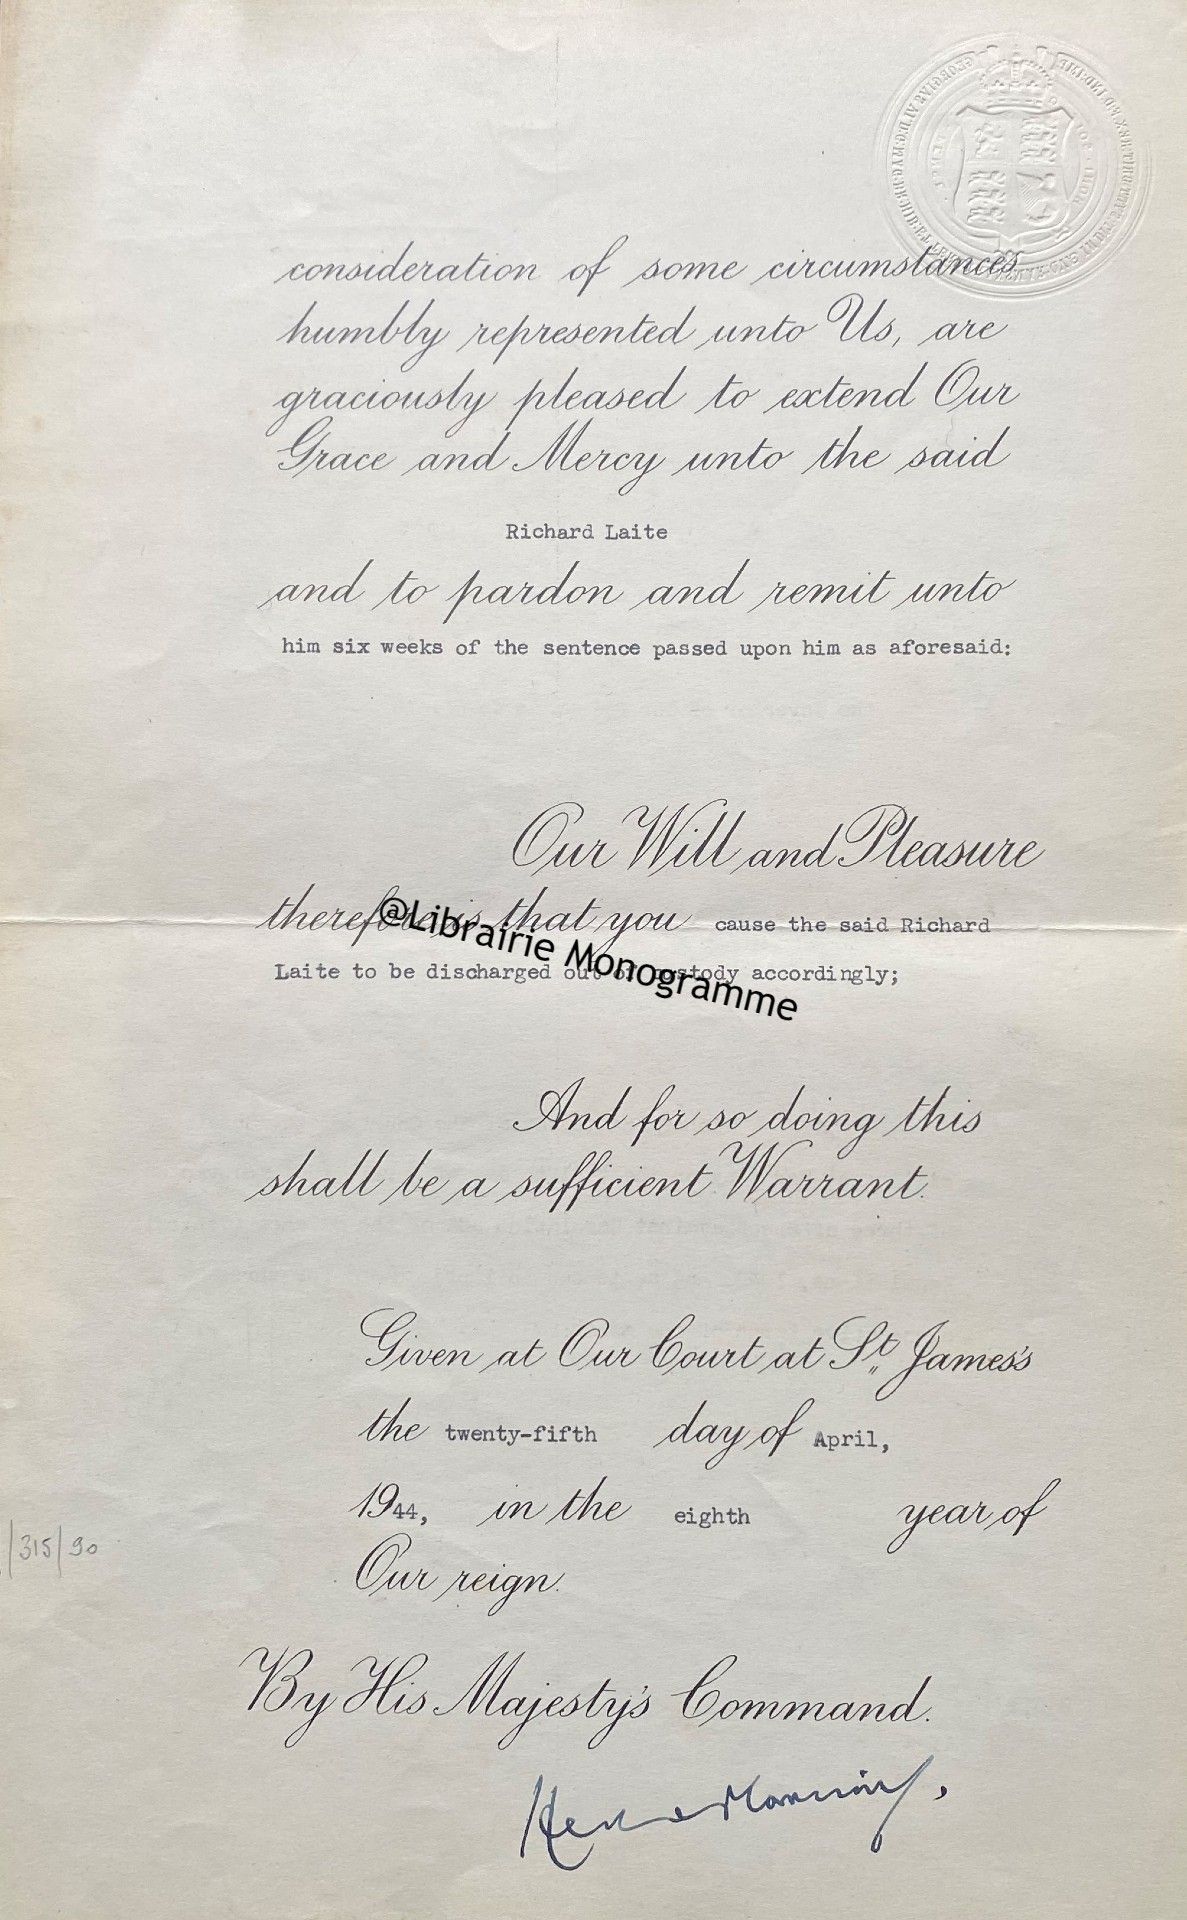 consideration of some circumstances
humbly represented unto Us, are
graciously pleased to extend Our
Grace and Mercy unto the said
Richard Laite
and to pardon and remit unto
him six weeks of the sentence passed upon him as aforesaid:
Our Will and Pleasure
therefore is that you cause the said Richard
Laite to be discharged out of custody accordingly;
@Librairie Monogramme
And for so doing this
shall be a sufficient Warrant.
Given at Our Court at St James's
the twenty-fifth day of April,
1944, in the eighth year of
/315/90
Our reign.
By His Majesty's Command.
Herbert Morrison.